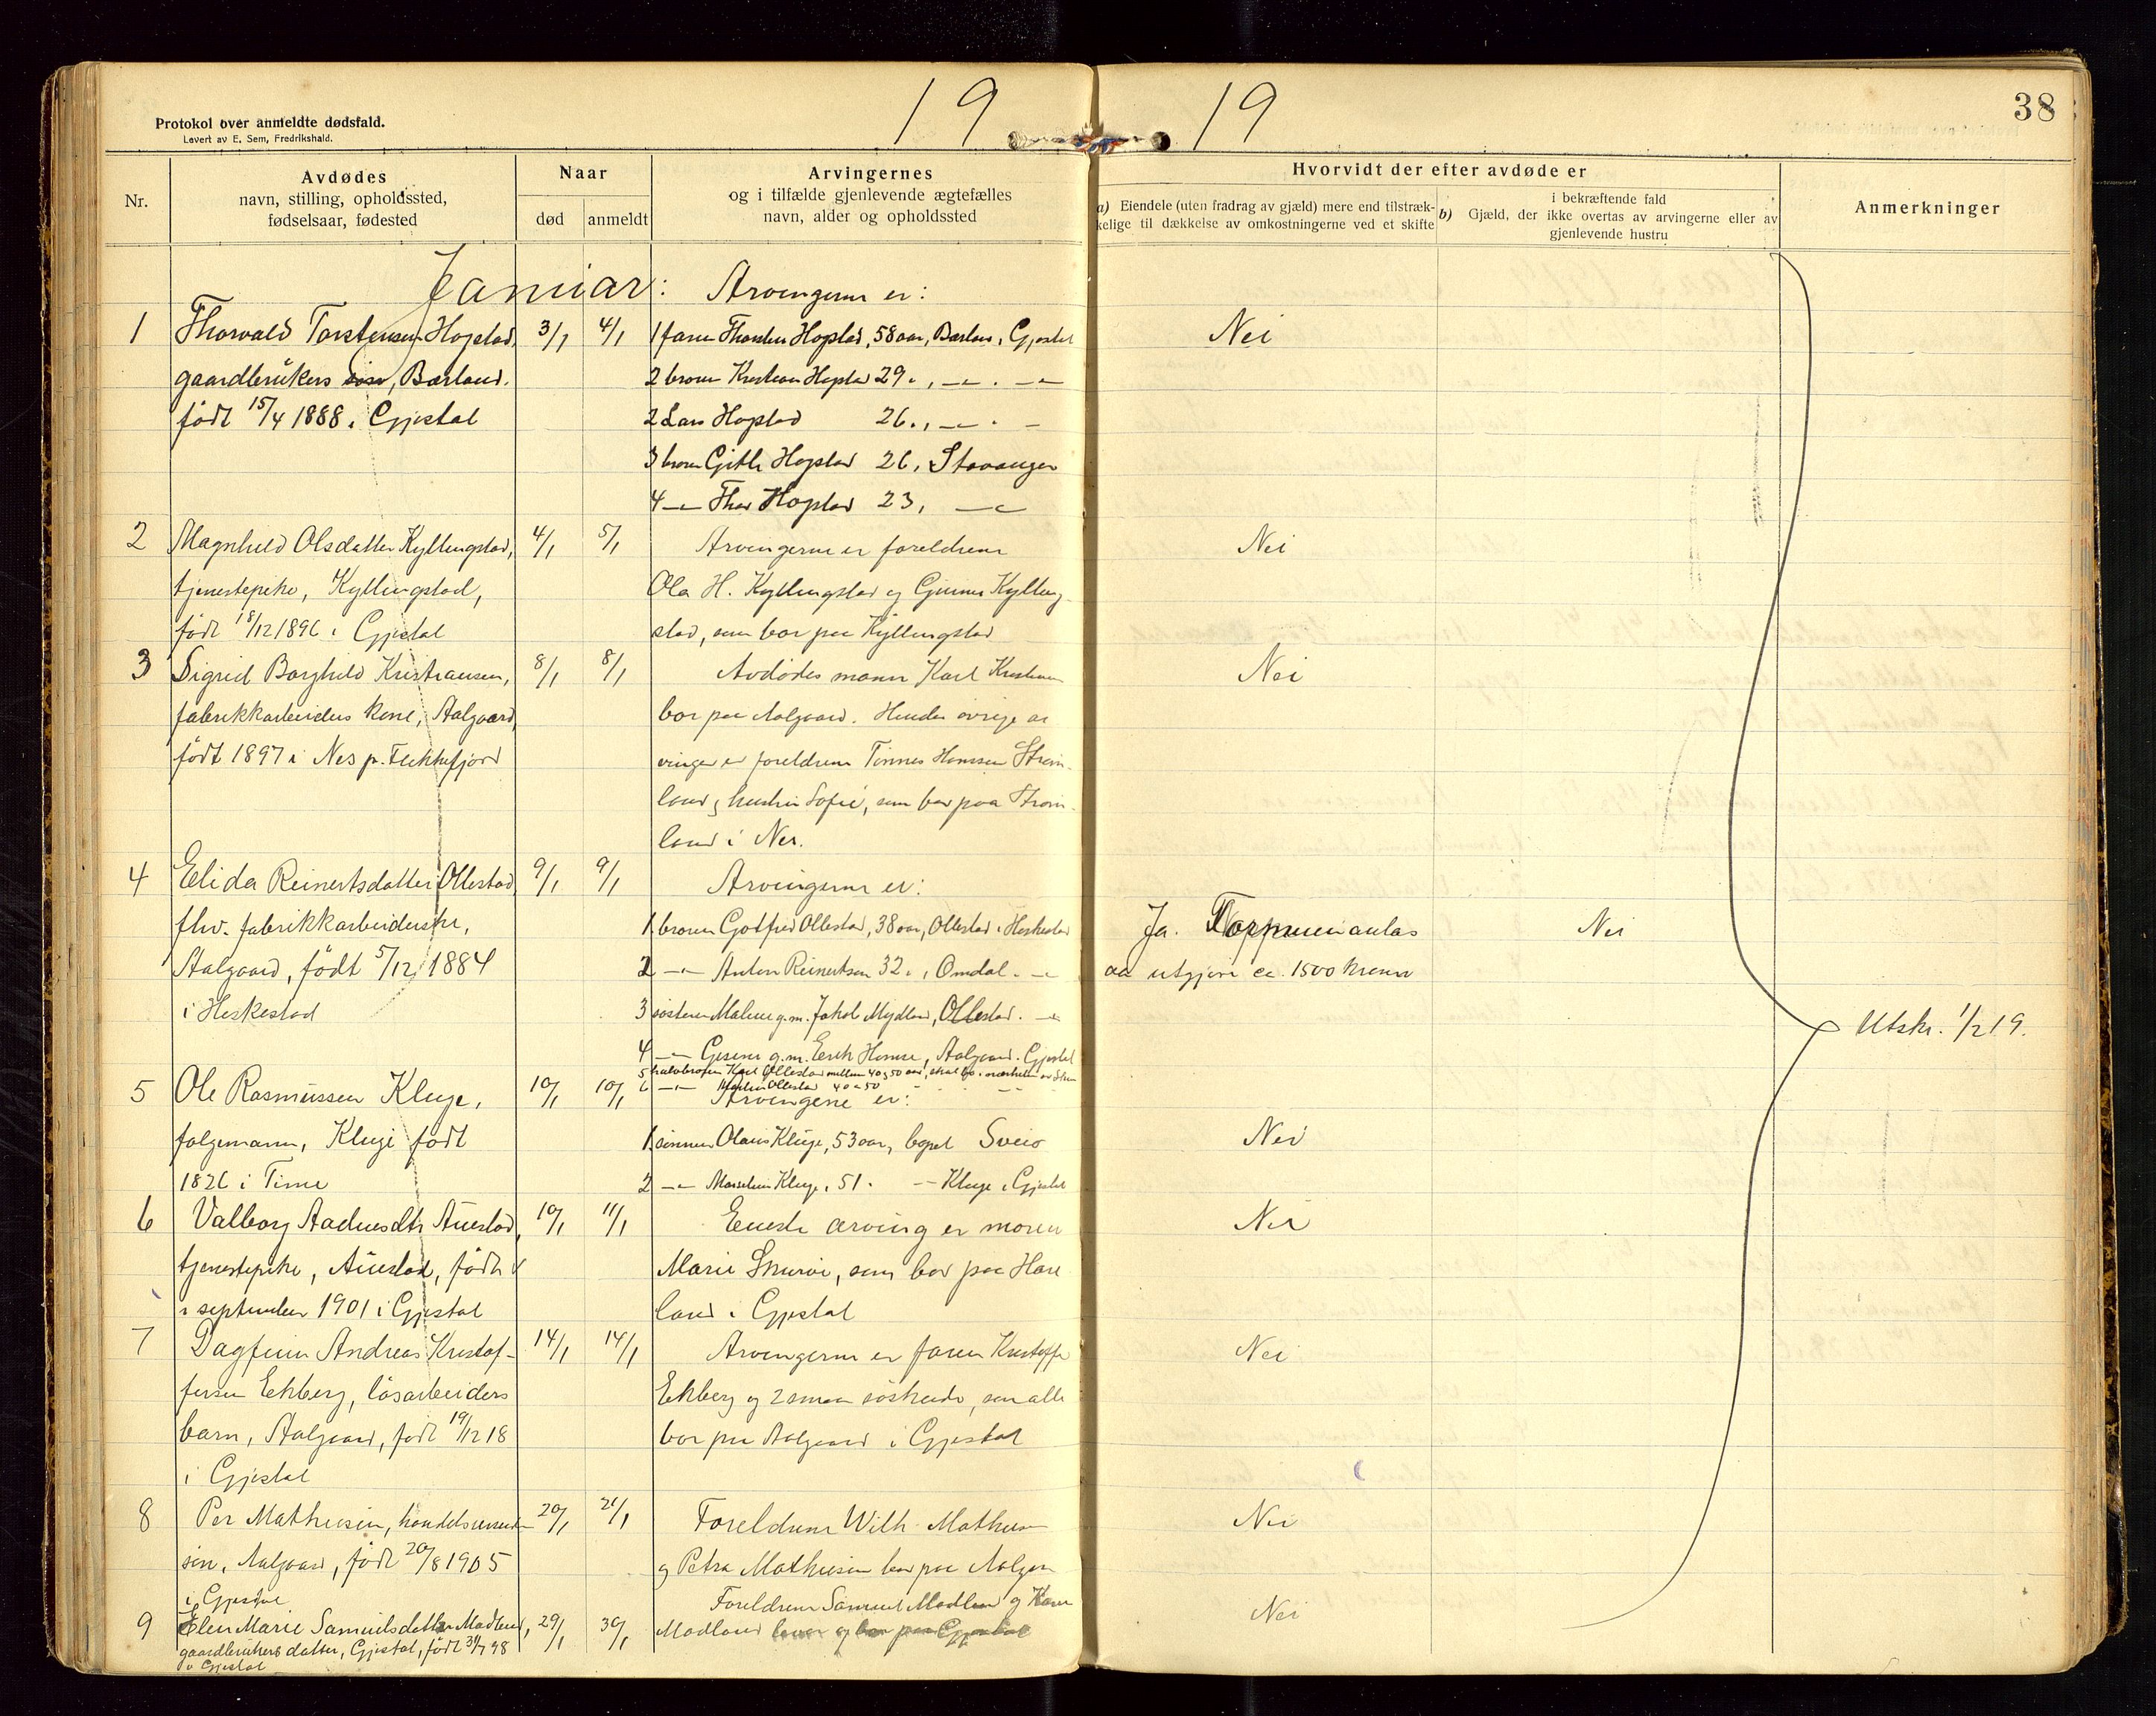 19 19
38
Protokol over anmeldte dødsfald.
Levert av E. Sem, Fredrikshald.
Nr.
Avdødes
navn, stilling, opholdssted,
fødselsaar, fødested
Naar
død
anmeldt
Arvingernes
og i tilfælde gjenlevende ægtefælles
navn, alder og opholdssted
Hvorvidt der efter avdøde er
a) Eiendele (uten fradrag av gjæld) mere end tilstræk-
kelige til dækkelse av omkostningerne ved et skifte
i bekræftende fald
b) Gjæld, der ikke overtas av arvingerne eller av
gjenlevende hustru
Anmerkninger
Januar: Arvingerne er:
1 Thorvald Torstensen Hogstad, 3/1 4/1 1 faren Thorsten Hogstad, 58 aar, Bærland i Gjestal Nei
gaardbrukers søn, Bærland. 2 broren Kristian Hogstad 29
født 15/4 1888 i Gjestal 2 Lars Hogstad 26
3 broren Hogstad 26, Stavanger
4 Thor Hogstad 23,
2 Magnhild Olsdatter Kyllingstad, 4/1 5/1 Arvingerne er foreldrene Nei
tjenestepike, Kyllingstad, Ola H. Kyllingstad og Kylling-
født 18/12 1896 i Gjestal stad, som bor paa Kyllingstad
3 Sigrid Borghild Kristiansen, 8/1 8/1 Avdødes mann Karl Kristiansen Nei
fabrikkarbeiders kone, Aalgaard, bor paa Aalgaard. Hendes øvrige ar
født 1897 i Nes p. Flekkefjord vinger er foreldrene Tønnes Hanssen Strøm-
land og hustru Sofie, som bor paa Strøm-
land i Nes.
4 Elida Reinertsdatter Ollestad, 9/1 9/1 Arvingerne er:
fhv. fabrikkarbeiderske, 1. broren Gotfred Ollestad, 38 aar, Ollestad i Heskestad Ja. antas Nei
Aalgaard, født 5/12 1884 2 Anton Reinertsen 32, Omdal aa utgjøre ca. 1500 kroner
i Heskestad 3 søsteren Malene g.m. Jakob Mydland, Ollestad.
Utskr. 1/2 19.
4 g.m. Erik Aalgaard, Gjestal
5 halvbroren Karl Ollestad mellem 40 og 50 aar, skal bo i nærheten av
6 Martin Ollestad 40 a 50
5 Ole Rasmussen Kluge, 10/1 10/1 Arvingene er:
følgemann, Kluge født 1. sønnen Olaus Kluge, 53 aar, bopæl Sveio Nei
1826 i Time 2 Kluge, 51. Kluge i Gjestal
6 Valborg Auestad, 10/1 11/1 Eneste arving er moren Nei
tjenestepike, Auestad, født Marie som bor paa Hare
i september 1901 i Gjestal land i Gjestal
7 Dagfinn Andreas Kristof- 14/1 14/1 Arvingerne er faren Kristoffer Nei
fersen Ekberg, løsarbeiders Ekberg og 2 smaa søskende, som alle
barn, Aalgaard, født 19/12 18 bor paa Aalgaard i Gjestal
i Gjestal
8 Per Mathiesen, 20/1 21/1 Foreldrene Wilh. Mathiesen Nei
søn, Aalgaard, født 20/8 1905 og Petra Mathiesen bor paa Aalgaard
i Gjestal
9 Elen Marie Samuelsdatter Madland, 29/1 30/1 Foreldrene Samuel Madland og Karen Nei
gaardbrukers datter, Gjestal, født 31/7 98 Madland
i Gjestal